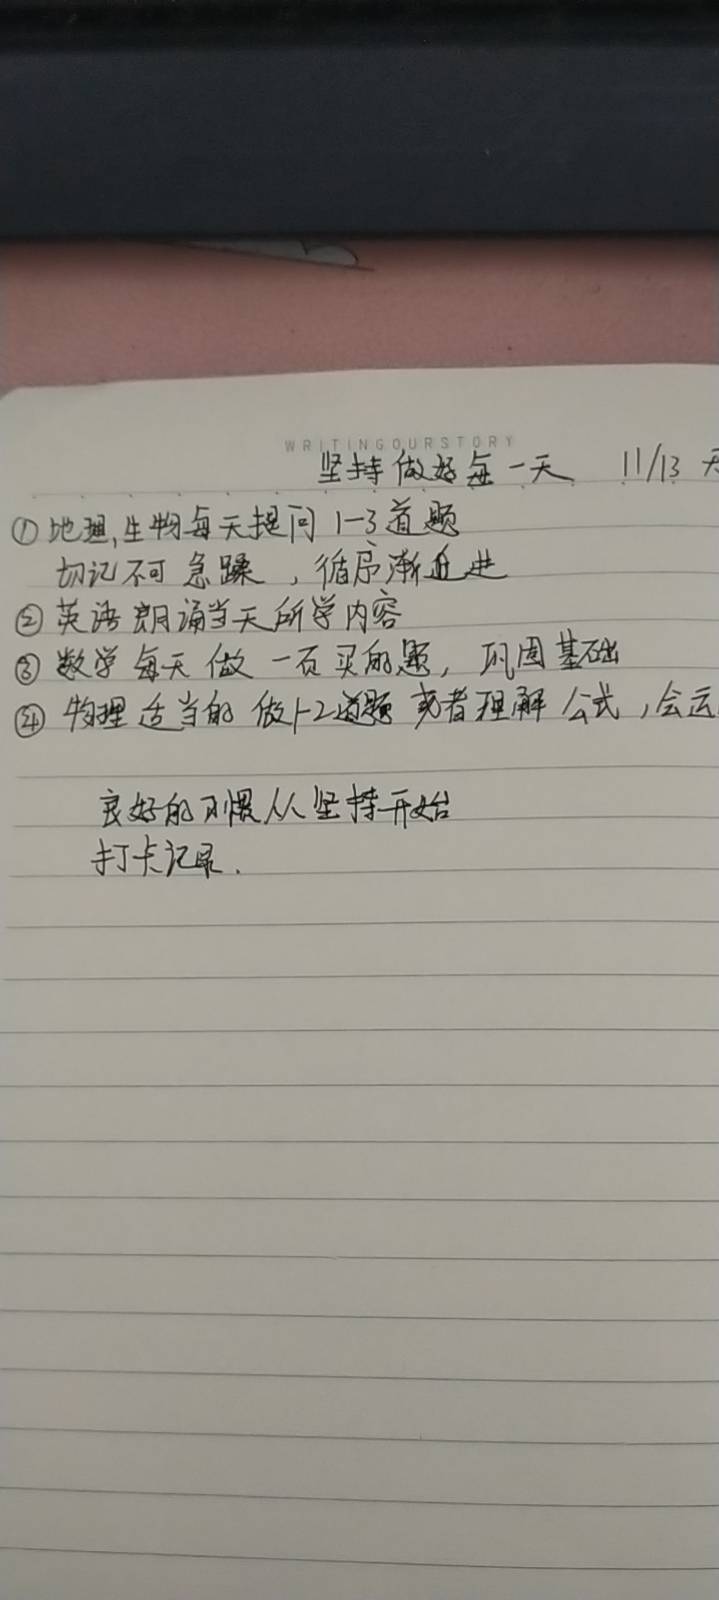 WRITINGOURSTORY
坚持做好每一天 11/13 天
①地理,生物每天提问1-3道题
切记不可急躁,循序渐近进
②英语朗诵当天所学内容
③数学每天做一页买的题,巩固基础
④物理适当的做1-2道题或者理解公式,会运
良好的习惯从坚持开始
打卡记录.